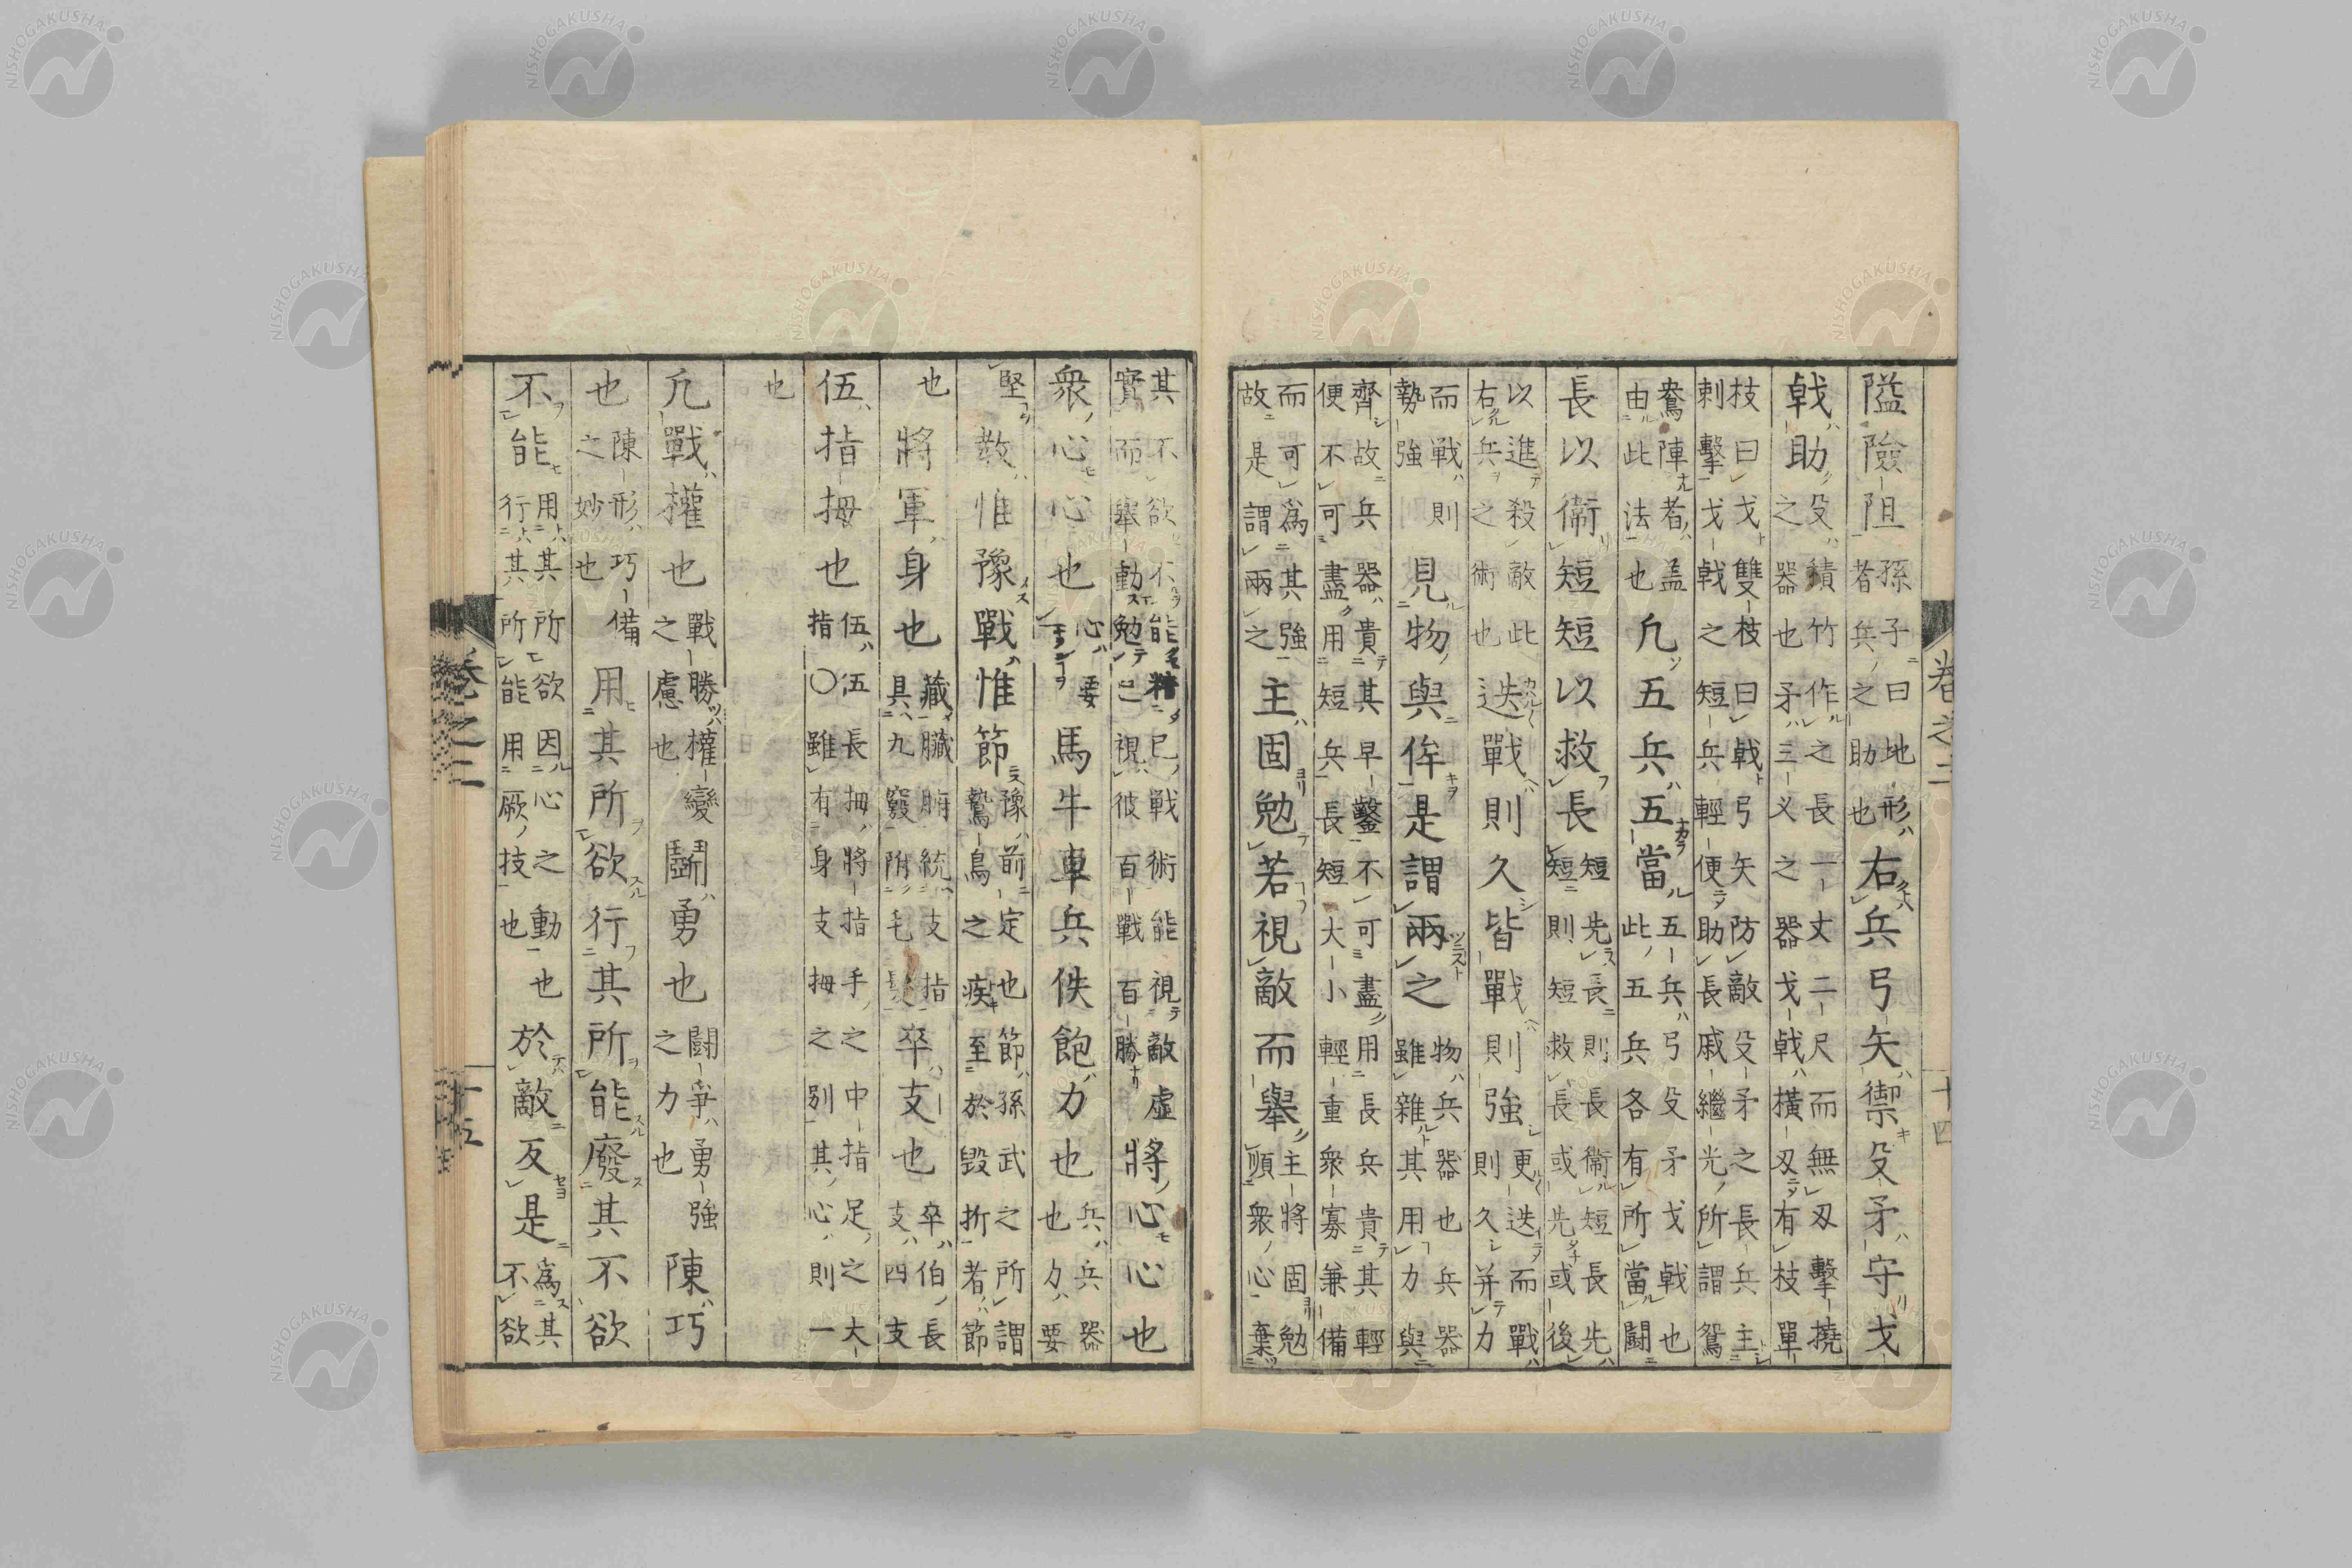 卷之二 十四
隘險阻孫子曰地形者兵之助也右兵弓矢禦殳矛守戈
戟助殳積竹作之長一丈二尺而無刄擊撓之器也矛三义之器戈戟橫刄有枝單
枝曰戈雙枝曰戟弓矢防敵殳矛之長兵主刺擊戈戟之短兵輕便助長戚繼光所謂鴛
鴦陣者盖由此法也凢五兵五當五兵弓殳矛戈戟也此五兵各有所當闘
長以衞短短以救長短先長則長衞短長先短則短救長或先或後
以進殺敵此右兵之術也迭戰則久皆戰則強更迭而戰則久并力
而戦則勢強見物與侔是謂兩之物兵器也兵器雖雜其用力與
齊故兵器貴其早鑿不可盡用長兵貴其輕便不可盡用短兵長短大小輕重衆寡兼備
而可為其強故是謂兩之主固勉若視敵而舉主將固勉順衆心棄
其不欲不能精己戦術能視敵虛實而舉動勉已視彼百戰百勝將心心也
衆心心也心要馬牛車兵佚飽力也兵兵器也力要
堅教惟豫戰惟節豫前定也節孫武之所謂鷙鳥之疾至於毀折者節
也將軍身也藏臓腑統支指具九竅附毛髮卒支也卒伯長支四支
伍指拇也伍伍長拇將指手之中指足之大指〇雖有身支拇之別其心則一
也
凢戰權也戰勝權變之慮也鬭勇也闘爭勇強之力也陳巧
也陳形巧備之妙也用其所欲行其所能廢其不欲
不能用其所欲因心之動也行其所能用厥技也於敵反是為其不欲
卷之二 十五